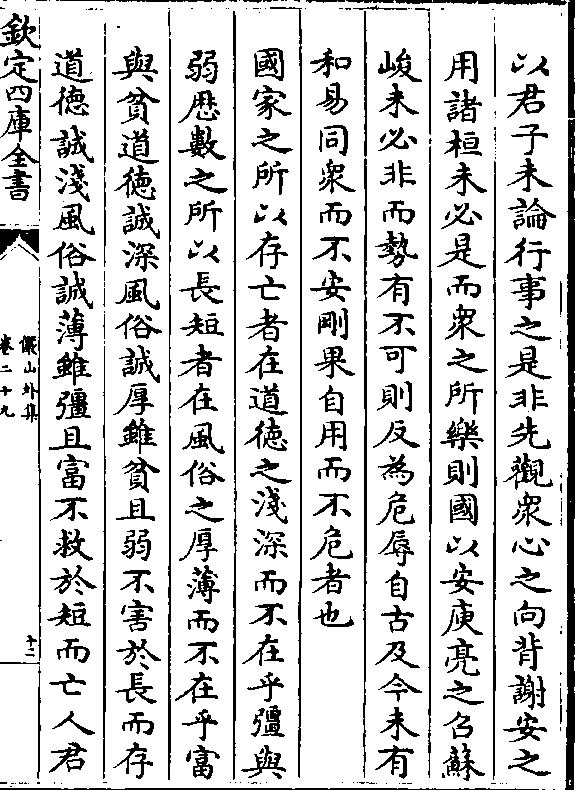 以君子未論行事之是非先觀衆心之向背謝安之
用諸桓未必是而衆之所樂則國以安庾亮之召蘇
峻未必非而勢有不可則反為危辱自古及今未有
和易同衆而不安剛果自用而不危者也
國家之所以存亡者在道徳之淺深而不在乎彊與
弱歴數之所以長短者在風俗之厚薄而不在乎富
與貧道徳誠深風俗誠厚雖貧且弱不害於長而存
道徳誠淺風俗誠薄雖彊且富不救於短而亡人君
欽定四庫全書
儼山外集
卷二十九
十二